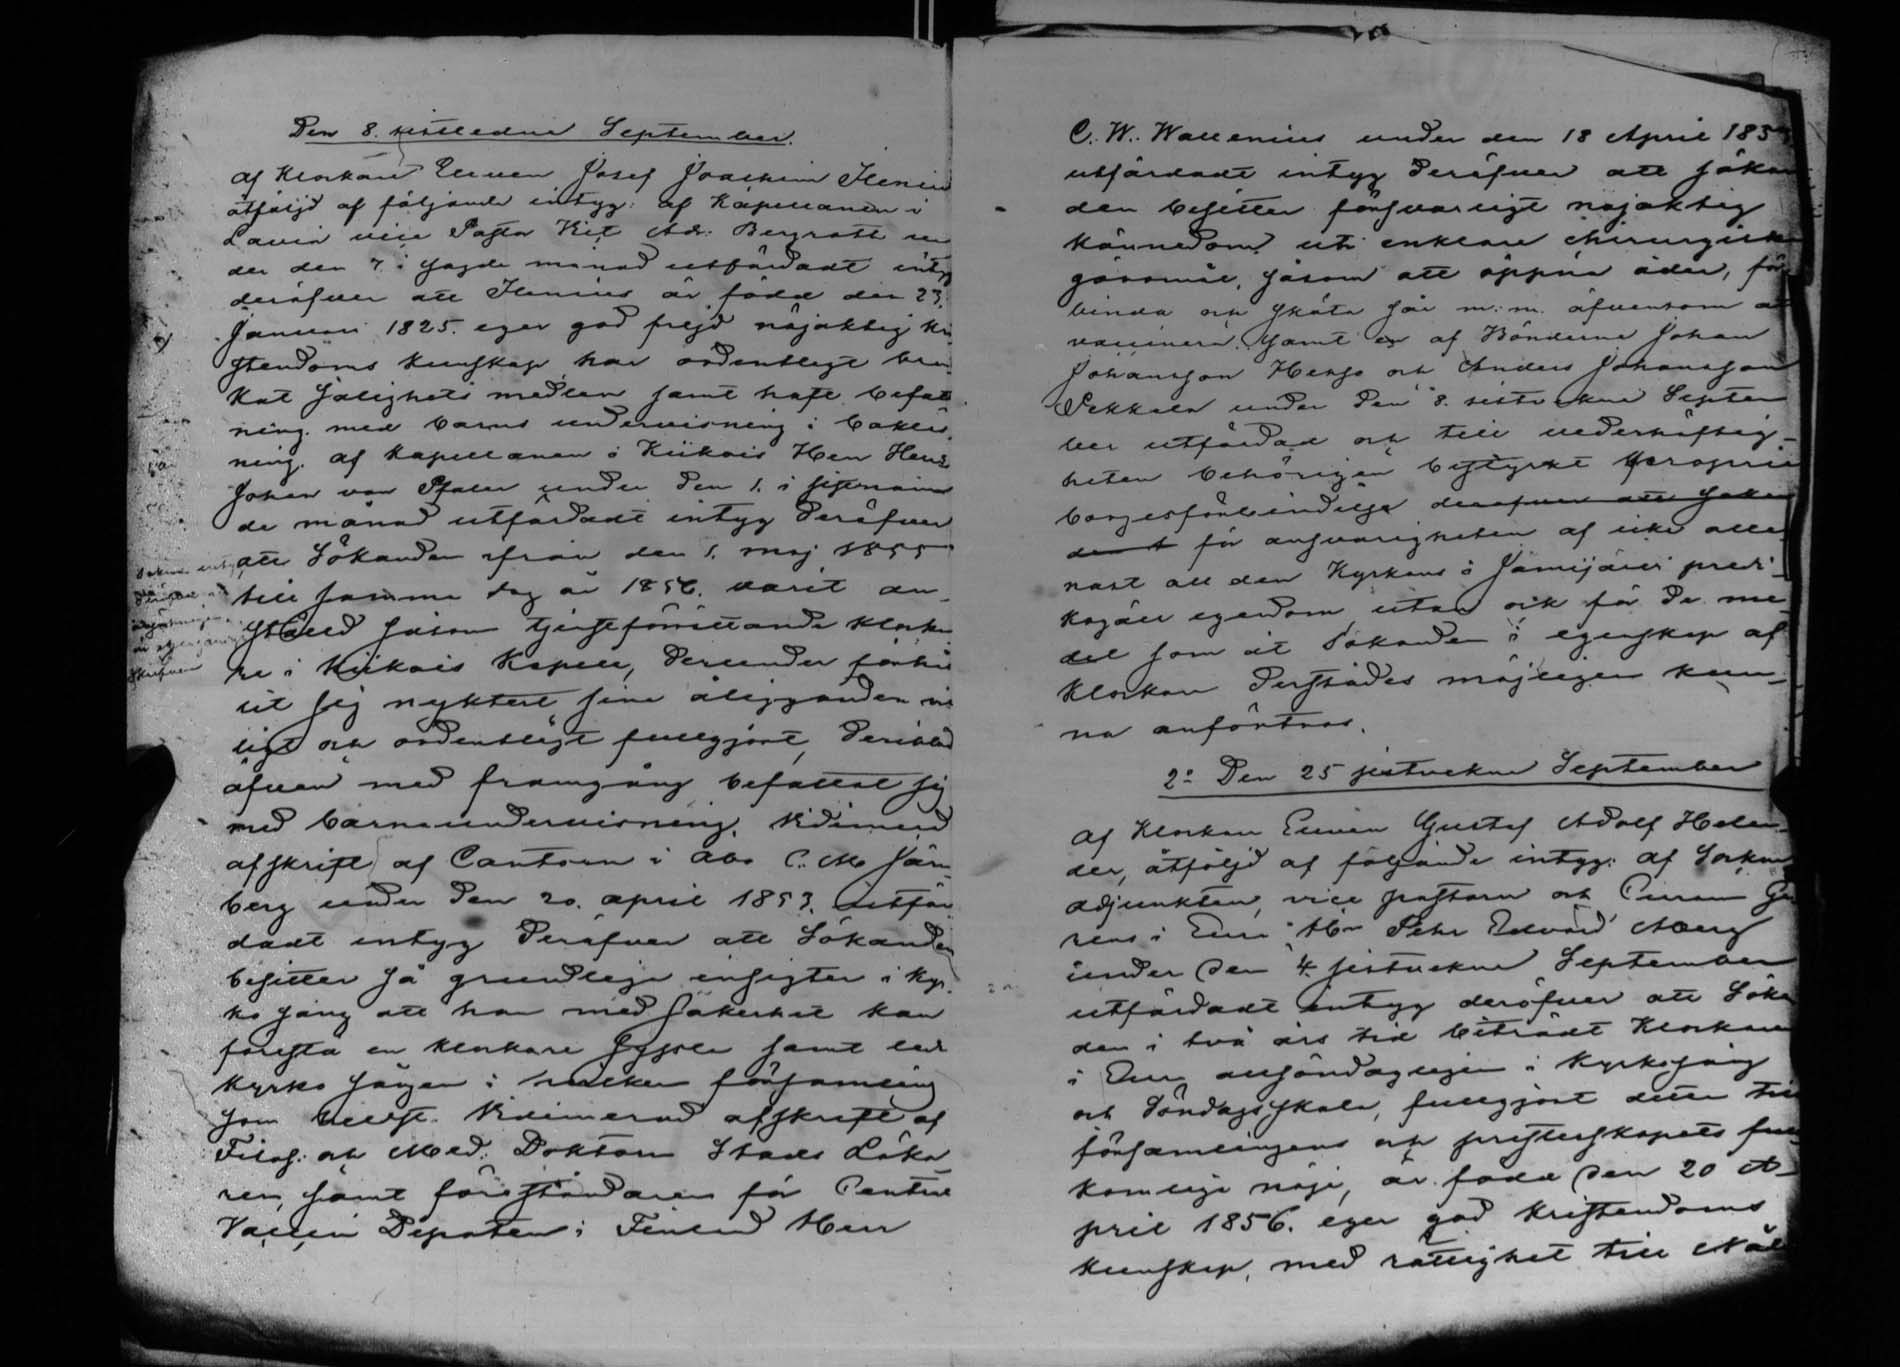 Den 8. sistledne September.
af Klockare Eleven Josef Joachim Ilenius
åtföljd af följande intyg: af Kapellanen i
Lavia vice Pastor Ad: Bergroth un
der den 7. i sagde månad utfärdadt intyg
deröfver att Ilenius är född den 23.
Januari 1825. eger god frejd nöjaktig kri
stendoms kunskap har ordentligt bru
kat salighets medlen samt haft befatt
ning med barns undervisning i boklär
ning. af Kapellanen i Kiikois Herr Henr
Johan von Pfaler under den 1. i sistnämn
de månad utfärdadt intyg deröfver
att Sökanden ifrån den 1. maj 1855
till samma dag år 1856. varit an_
stäld såsom tjensteförrättande klocka
re i Kiikois Kapell, derunder förhål
lit sig nyktert sine åligganden
ligt och ordentligt fullgjort, deribland
äfven med framgång befattat sig
med barnaundervisning. Vidimerad
afskrift af Cantorn i Abo
berg under den 20. april 1853. utfär
dadt intyg deröfver att Sökanden
besitter så grundlige insigter i kyr
ko sång att han med säkerhet kan
förestå en klockare syssla samt leda
kyrko sången i hvilken församling
som helst. Vidimerad afskrift af
Filos. och Med. Doktorn Stads Läka
ren, samt föreståndaren för Central
Vaccin Depoten i Finland Herr
C. W. Wallenius under den 18 April 185
utfärdadt intyg deröfver att sökan
den besitter försvarligt nöjaktig
kännedom uti enklare chirurgiska
göromål, såsom att öppna åder, för
binda och sköta sår m: m. äfvensom att
vaccinera. Samt af Bönderne Johan
Johansson Heksjo och Anders Johansson
Pekkala under den 8. sistvekne Septem
ber utfärdad och till vederhäftig_
heten behörigen bestyrkt
borgesförbindelse deröfver att Söken
den t för ansvarigheten af icke alle
nast all den Kyrkans i Jämijärvi predi_
kogäll egendom utan ock för de me_
del som åt Sökanden i egenskap af
klockare derstädes möjligen kun_
na anförtros.
2:o Den 25 sistvekne September
af Klockare Eleven Gustaf Adolf Helen_
der, åtföljd af följande intyg: af Socken
adjunkten, vice pastorn och
rens i Eura Hr Petr Edvard Åberg
under den 4. sistvekne September
utfärdadt intyg deröfver att Söka
den i två års tid biträdt Klockaren
i Eura allsöndagligen i kyrkosång
och Söndagsskola, fullgjort detta till
församlingens och presterskapets full
komlige nöje, är född den 20 A_
pril 1856. eger god kristendoms
kunskap, med rättighet till Natt